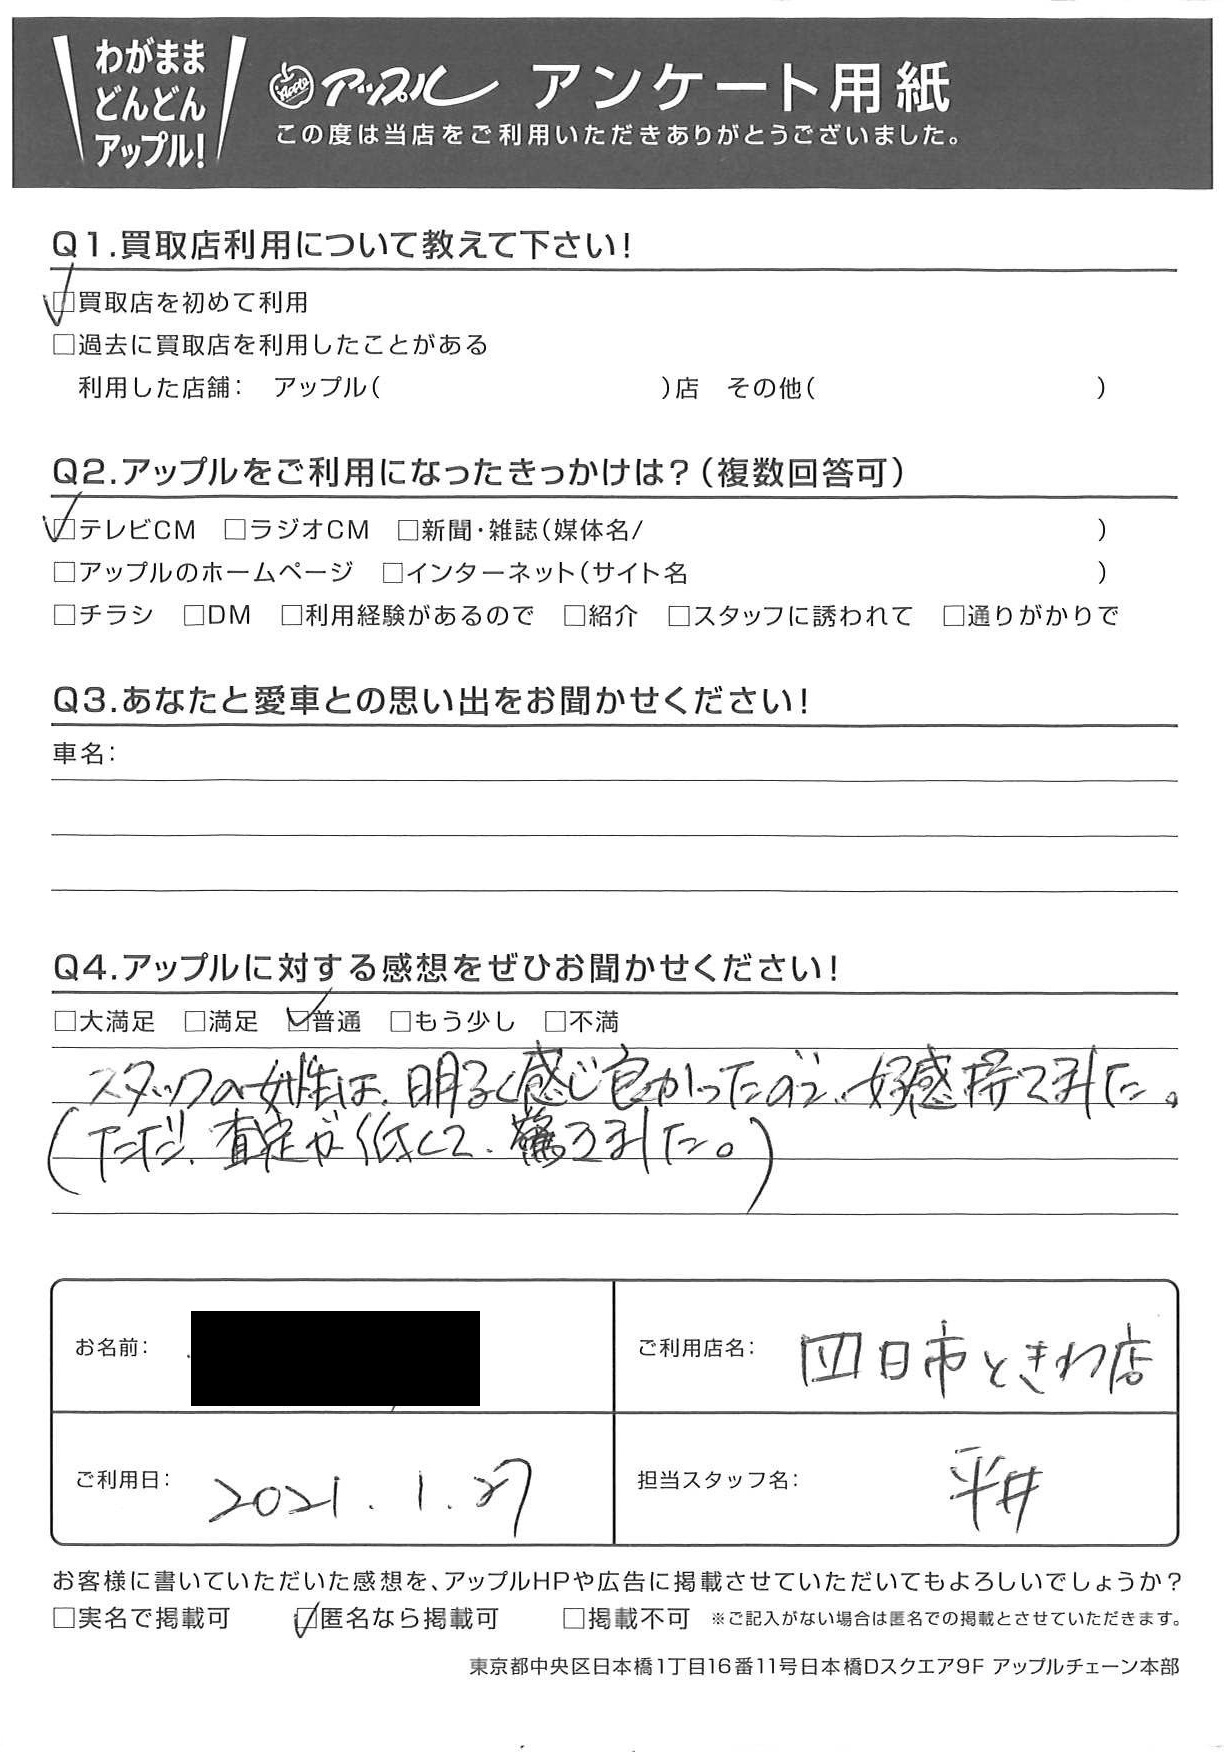 わがまま
どんどん
アップル!
Apple アップル アンケート用紙
この度は当店をご利用いただきありがとうございました。
Q1.買取店利用について教えて下さい!
☑買取店を初めて利用
□過去に買取店を利用したことがある
利用した店舗: アップル( )店 その他( )
Q2.アップルをご利用になったきっかけは?(複数回答可)
☑テレビCM □ラジオCM □新聞・雑誌(媒体名/ )
□アップルのホームページ □インターネット(サイト名 )
□チラシ □DM □利用経験があるので □紹介 □スタッフに誘われて □通りがかりで
Q3.あなたと愛車との思い出をお聞かせください!
車名:
Q4.アップルに対する感想をぜひお聞かせください!
□大満足 □満足 ☑普通 □もう少し □不満
スタッフの女性は、明るく感じ良かったので、好感持てました。
(ただ、査定が低くて、驚きました。)
お名前:
ご利用店名: 四日市ときわ店
ご利用日: 2021.1.27
担当スタッフ名: 平井
お客様に書いていただいた感想を、アップルHPや広告に掲載させていただいてもよろしいでしょうか?
□実名で掲載可 ☑匿名なら掲載可 □掲載不可 ※ご記入がない場合は匿名での掲載とさせていただきます。
東京都中央区日本橋1丁目16番11号日本橋Dスクエア9F アップルチェーン本部